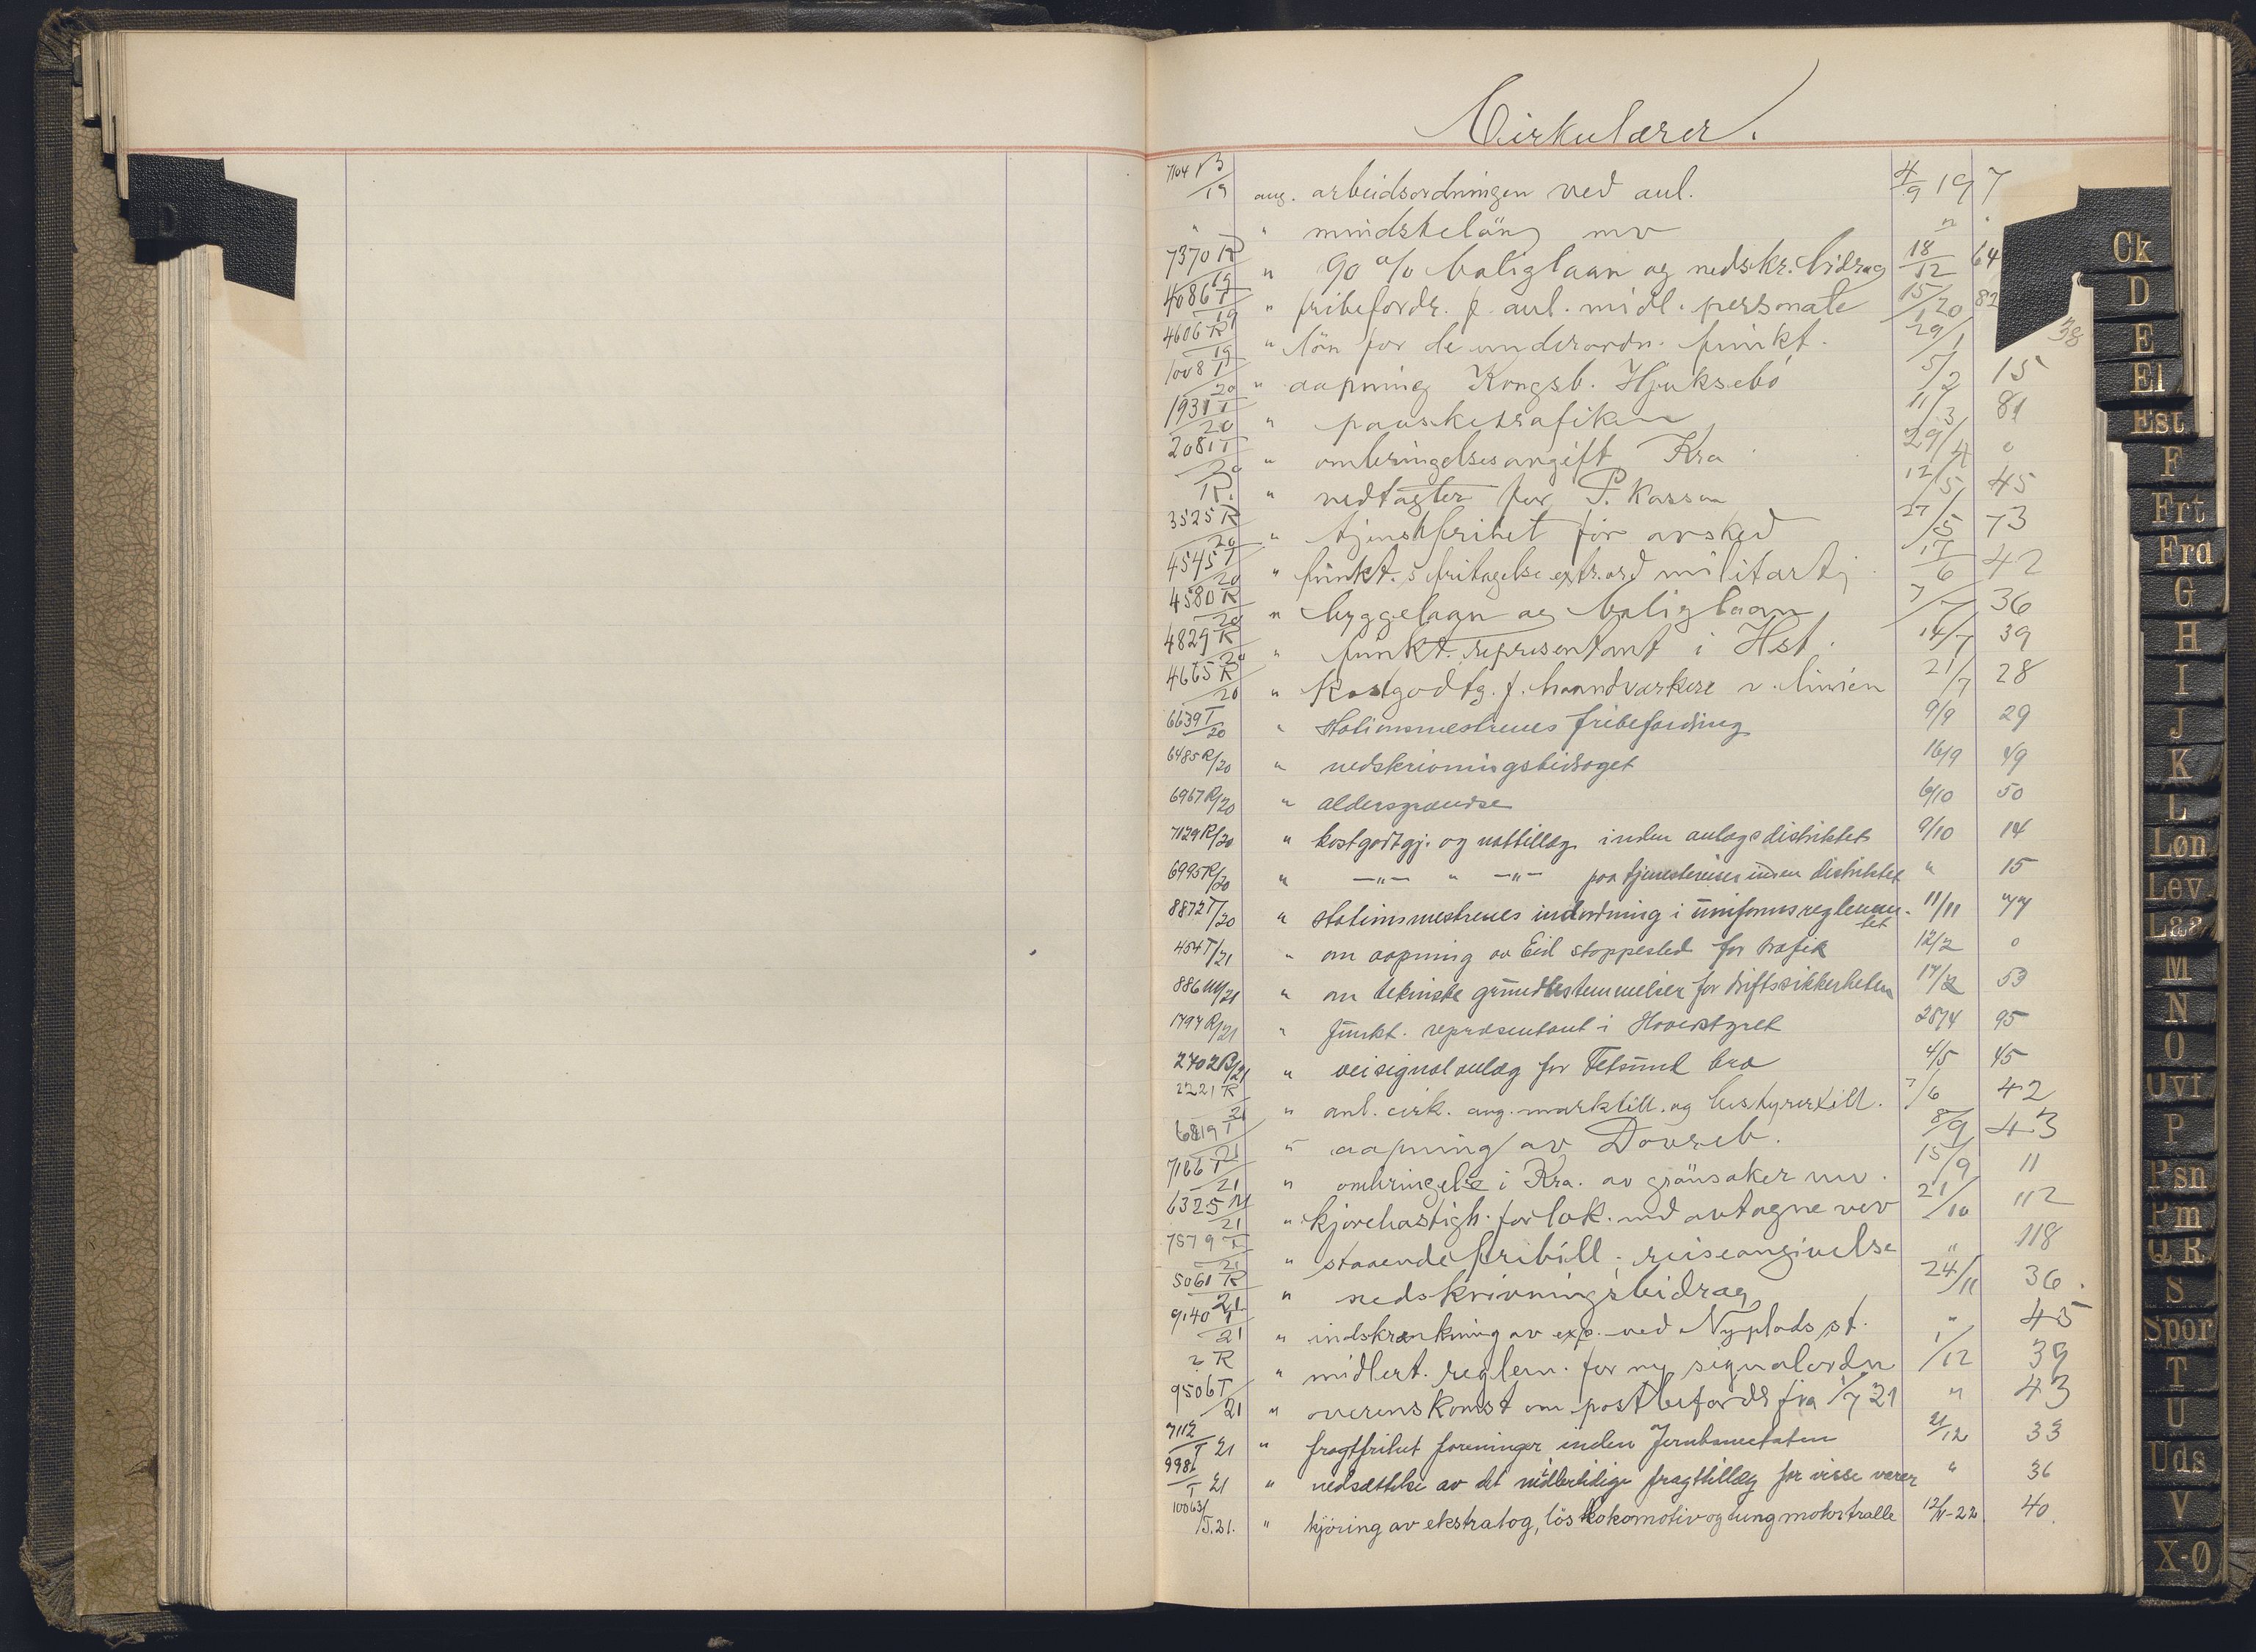 Cirkulærer.
7104 B/19 ang. arbeidsordningen ved anl. 4/9 19 7
" " mindstelön mv " "
7370 R/19 " 90 % boliglaan og nedskr. bidrag 18/12 64
4086 T/19 " fribefordr. f. anl. midl. personale 15/1 20 82
4606 R/19 " lön for de underordn. funkt. 29/1 38
1008 T/20 " aapning Kongsb. Hjuksebö 5/2 15
1931 T/20 " paasketrafiken 11/3 81
2081 T/20 " ombringelsesavgift Kra 29/4 0
R. " vedtægter for P. Kassen 12/5 45
3525 R/20 " tjenestfrihet för avsked 27/5 73
4545 T/20 " funkt. s fritagelse extr.ord militærtj. 17/6 42
4580 R/20 " byggelaan og boliglaan 7/7 36
4829 R/20 " funkt. representant i Hst. 14/7 39
4665 R/20 " Kostgodtg. f. haandverkere v. linien 21/7 28
6639 T/20 " Stationsmestrenes fribefordring 9/9 29
6485 R/20 " nedskrivningsbidraget 16/9 49
6967 R/20 " aldersgrændse 6/10 50
7129 R/20 " kostgodtgj. og nattillæg inden anlægsdistriktet 9/10 14
6995 R/20 " —"— " —"— paa tjenestereiser inden distriktet " 15
8872 T/20 " Stationsmestrenes indordning i uniformsreglemen- 11/11 77
tet
454 T/21 " om aapning av Eid stoppested for trafik 12/2 0
886 M/21 " om tekniske grundbestemmelser for driftssikkerheten 17/2 53
1797 R/21 " funkt. repræsentant i Hovedstyret 28/4 95
2702 B/21 " veisignalanlæg for Fetsund bro 4/5 45
2221 R/21 " anl. cirk. ang. marktill. og bestyrertill. 7/6 42
6819 T/21 " aapning av Dovreb. 8/9 43
7166 T/21 " ombringelse i Kra. av grönsaker mv. 15/9 11
6325 M/21 " kjörehastigh. for lok. med avtagne vev 21/10 112
7579 T/21 " staaende fribill. reiseangivelse " 118
5061 R/21 " nedskrivningsbidrag 24/11 36.
9140 T/21 " indskrænkning av exp. ved Nyplads st. " 45
? R " midlert. reglem. for ny signalordn 1/12 39
9506 T/21 " overenskomst om postbefordr fra 1/7 21 " 43
7112/T 21 " fragtfrihet foreninger inden Jernbaneetaten 21/12 33
998/T 21 " nedsættelse av det midlertidige fragttillæg for visse varer " 36
10063/T.21. " kjöring av ekstratog, lös lokomotiv og tung motortralle 12/1-22 40.
Ck
D
E
El
Est
F
Frt
Frd
G
H
I
J
K
L
Løn
Lev
Laa
M
N
O
Ovf
P
Psn
Rm
Q R
S
Spor
T
U
Uds
V
X-Ø